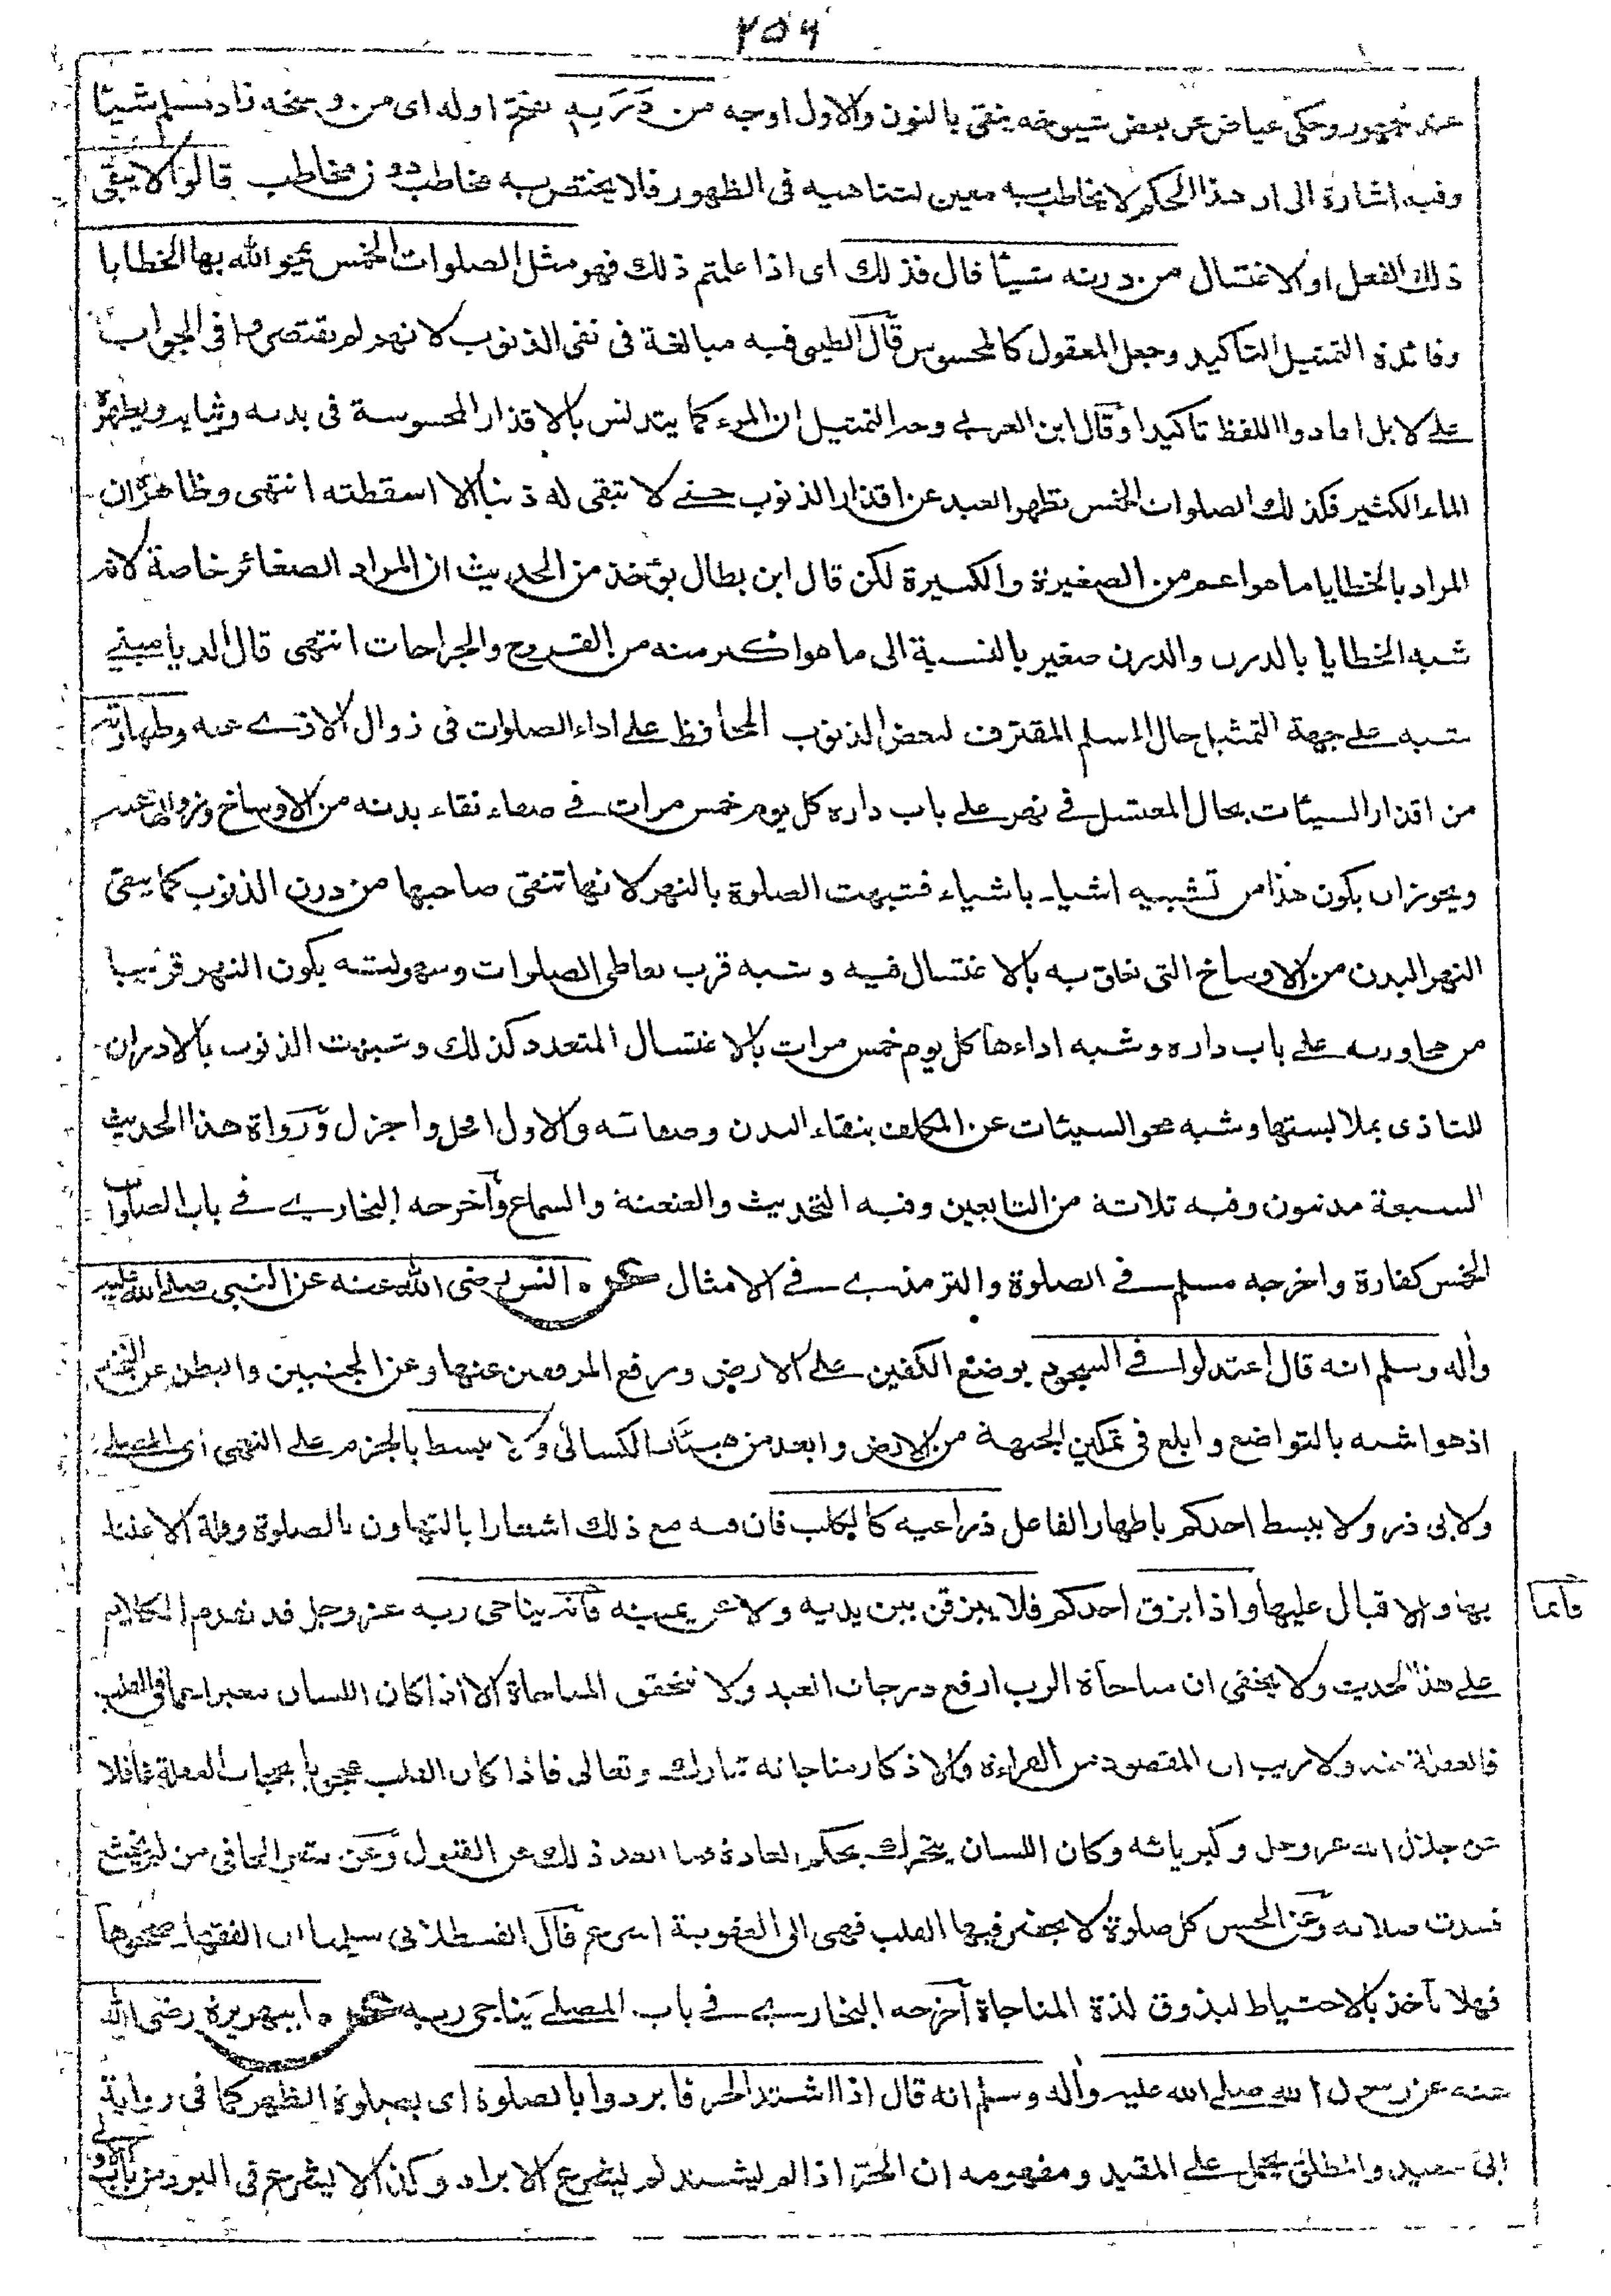 ٢٥٦
عند الجمهور وحكى عياض عن بعض شيوخه ينقى بالنون والاول اوجه من دَرَنِه بفتح اوله اى من وسخه زاد مسلم شيئا
وفيه اشارة الى ان هذا الحكم لا يخاطب به معين لتناهيه فى الظهور فلا يختص به مخاطب دون مخاطب قالوا لا يبقى
ذلك الفعل او الاغتسال من درنه شيئا قال فذلك اى اذا علمتم ذلك فهو مثل الصلوات الخمس يمحو الله بها الخطايا
وفائدة التمثيل التاكيد وجعل المعقول كالمحسوس قال الطيبى فيه مبالغة فى نفى الذنوب لانهم لم يقتصروا فى الجواب
على لا بل اعادوا اللفظ تاكيدا وقال ابن العربى وجه التمثيل ان المرء كما يتدنس بالاقذار المحسوسة فى بدنه وثيابه ويطهره
الماء الكثير فكذلك الصلوات الخمس تطهر العبد عن اقذار الذنوب حتى لا تبقى له ذنبا الا اسقطته انتهى وظاهره ان
المراد بالخطايا ما هو اعم من الصغيرة والكبيرة لكن قال ابن بطال يؤخذ من الحديث ان المراد الصغائر خاصة لانه
شبه الخطايا بالدرن والدرن صغير بالنسبة الى ما هو اكبر منه من القروح والجراحات انتهى قال
شبه على جهة التمثيل حال المسلم المقترف لبعض الذنوب المحافظ على اداء الصلوات فى زوال الاذى عنه وطهارته
من اقذار السيئات بحال المغتسل فى نهر على باب داره كل يوم خمس مرات فى صفاء نقاء بدنه من الاوساخ وزوالها عنه
ويجوز ان يكون هذا من تشبيه اشياء باشياء فشبهت الصلوة بالنهر لانها تنقى صاحبها من درن الذنوب كما ينقى
النهر البدن من الاوساخ التى تعلق به بالاغتسال فيه وشبه قرب تعاطى الصلوات وسهولته بكون النهر قريبا
من مجاوريه على باب داره وشبه اداءها كل يوم خمس مرات بالاغتسال المتعدد كذلك وشبهت الذنوب بالادران
للتاذى بملابستها وشبه محو السيئات عن المكلف بنقاء البدن وصفائه والاول افحل واجزل ورواة هذا الحديث
السبعة مدنيون وفيه ثلاثة من التابعين وفيه التحديث والعنعنة والسماع واخرجه البخارى فى باب الصلوات
الخمس كفارة واخرجه مسلم فى الصلوة والترمذى فى الامثال عن انس رضى الله عنه عن النبى صلى الله عليه
وآله وسلم انه قال اعتدلوا فى السجود بوضع الكفين على الارض ورفع المرفقين عنها وعن الجنبين والبطن عن الفخذ
اذ هو اشبه بالتواضع وابلغ فى تمكين الجبهة من الارض وابعد من هيئات الكسالى ولا يبسط بالجزم على النهى اى المصلى
ولابى ذر ولا يبسط احدكم باظهار الفاعل ذراعيه كالكلب فان فيه مع ذلك اشعارا بالتهاون بالصلوة وقلة الاعتناء
بها والاقبال عليها واذا بزق احدكم فلا يبزقن بين يديه ولا عن يمينه فانه يناجى ربه عز وجل قد تقدم الكلام
فانما
على هذا الحديث ولا يخفى ان مناجاة الرب ارفع درجات العبد ولا تتحقق المناجاة الا اذا كان اللسان معبرا عما فى القلب
فالغفلة ضد ولا ريب ان المقصود من القراءة والاذكار مناجاته تبارك وتعالى فاذا كان القلب محجوبا بحجاب الغفلة غافلا
عن جلال الله عز وجل وكبريائه وكان اللسان يتحرك بحكم العادة فما ابعد ذلك عن القبول وعن بشر الحافى من لم يخشع
فسدت صلاته وعن الحسن كل صلوة لا يحضر فيها القلب فهى الى العقوبة اسرع قال القسطلانى سلمنا ان الفقهاء صححوها
فهلا نأخذ بالاحتياط لنذوق لذة المناجاة اخرجه البخارى فى باب المصلى يناجى ربه عن ابى هريرة رضى الله
عنه عن رسول الله صلى الله عليه وآله وسلم انه قال اذا اشتد الحر فابردوا بالصلوة اى بصلوة الظهر كما فى رواية
ابى سعيد والمطلق يحمل على المقيد ومفهومه ان الحر اذا لم يشتد لم يشرع الابراد وكذا لا يشرع فى البرد من باب الاولى